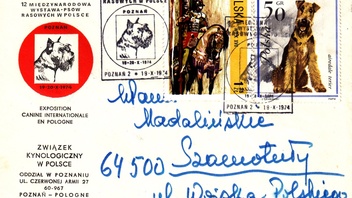 12 MIĘDZYNARODOWA
WYSTAWA-PSÓW
RASOWYCH W POLSCE
POZNAŃ
19-20-X-1974
EXPOSITION
CANINE INTERNATIONALE
EN POLOGNE
ZWIĄZEK
KYNOLOGICZNY
W POLSCE
ODDZIAŁ W POZNANIU
UL. CZERWONEJ ARMII 27
60-967
POZNAŃ - POLOGNE
RASOWYCH W POLSCE
POZNAŃ
19-20-X-1974
POZNAŃ 2 • 19-X-1974
POZNAŃ 2 • 19-X-1974
50
Madalińskie
64500 Szamotuły
ul. Wojska Polskiego